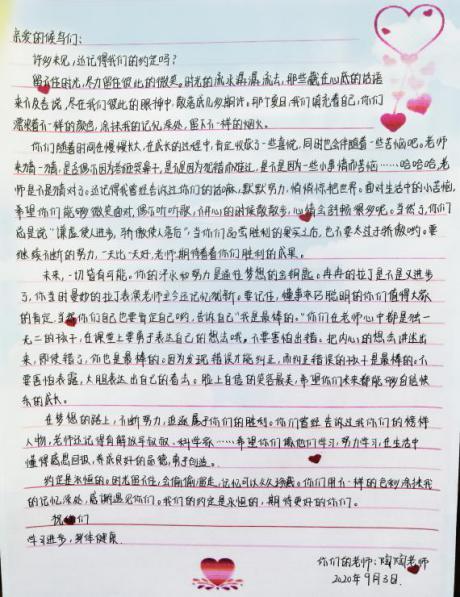 亲爱的候鸟们：
许多未见，还记得我们的约定吗？
留不住时光，尽力留住彼此的微笑。时光的流水潺潺流去，那些藏在心底的话语
来不及告说，尽在我们彼此的眼神中，散落成几多期许。那丁夏日，我们填充着自己，你们
漂染着不一样的颜色，涂抹我的记忆深处，留下不一样的烟火。
你们随着时间在慢慢长大，在成长的过程中，肯定收获了一些喜悦，同时也会伴随着一些苦恼吧。老师
来猜一猜，是否偶尔因为考砸哭鼻子，是不是因为犯错而难过，是不是因为一些小事情而苦恼……哈哈哈，老
师是不是猜对了。还记得我曾经告诉过你们的话嘛，默默努力，悄悄惊艳世界。面对生活中的小苦恼，
希望你们能够微笑面对，偶尔听听歌，不开心的时候散散步，心情会舒畅很多呢。当然了，你们
总是说“谦虚使人进步，骄傲使人落后”，当你们品尝胜利的果实之后，也不要太过于骄傲哟。要
继续不断的努力，一天比一天好，老师期待着看你们胜利的成果。
未来，一切皆有可能。你的汗水和努力是通往梦想的金钥匙。冉冉的拉丁是不是又进步
了，你当时曼妙的拉丁表演老师至今还记忆犹新。要记住，懂事乖巧聪明的你们值得大家
的肯定，当然你们自己也要肯定自己哟，告诉自己“我是最棒的。”你们在老师心中都是独一
无二的孩子，在课堂上要勇于表达自己的想法哦。不要害怕出错。把内心的想法讲述出
来，即使错了，你也是最棒的。因为发现错误才能纠正，而纠正错误的孩子是最棒的。不
要害怕表露，大胆表达出自己的看法。脸上自信的笑容最美，希望你们未来都能够自信快
乐的成长。
在梦想的路上，不断努力，追逐属于你们的胜利。你们曾经告诉过我你们的榜样
人物，老师还记得有解放军叔叔、科学家……希望你们向他们学习，努力学习，在生活中
懂得感恩回报，养成良好的品德，勇于创造。
约定是永恒的。时光留不住，会偷偷溜走，记忆可以久久珍藏。你们用不一样的色彩涂抹我
的记忆深处，感谢遇见你们。我们的约定是永恒的，期待更好的你们。
祝你们
学习进步，身体健康
你们的老师：陶陶老师
2020年9月3日.